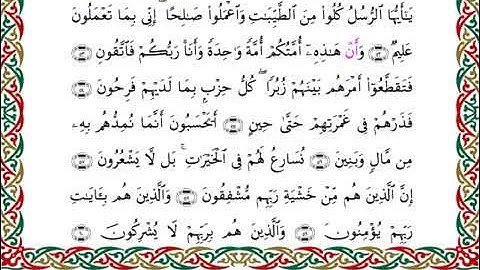 يَـٰٓأَيُّهَا ٱلرُّسُلُ كُلُوا۟ مِنَ ٱلطَّيِّبَـٰتِ وَٱعْمَلُوا۟ صَـٰلِحًا ۖ إِنِّى بِمَا تَعْمَلُونَ
عَلِيمٌ ۝ وَأَنَّ هَـٰذِهِۦٓ أُمَّتُكُمْ أُمَّةً وَٰحِدَةً وَأَنَا۠ رَبُّكُمْ فَٱتَّقُونِ ۝
فَتَقَطَّعُوٓا۟ أَمْرَهُم بَيْنَهُمْ زُبُرًا ۖ كُلُّ حِزْبٍۭ بِمَا لَدَيْهِمْ فَرِحُونَ ۝
فَذَرْهُمْ فِى غَمْرَتِهِمْ حَتَّىٰ حِينٍ ۝ أَيَحْسَبُونَ أَنَّمَا نُمِدُّهُم بِهِۦ
مِن مَّالٍ وَبَنِينَ ۝ نُسَارِعُ لَهُمْ فِى ٱلْخَيْرَٰتِ ۚ بَل لَّا يَشْعُرُونَ ۝
إِنَّ ٱلَّذِينَ هُم مِّنْ خَشْيَةِ رَبِّهِم مُّشْفِقُونَ ۝ وَٱلَّذِينَ هُم بِـَٔايَـٰتِ
رَبِّهِمْ يُؤْمِنُونَ ۝ وَٱلَّذِينَ هُم بِرَبِّهِمْ لَا يُشْرِكُونَ ۝